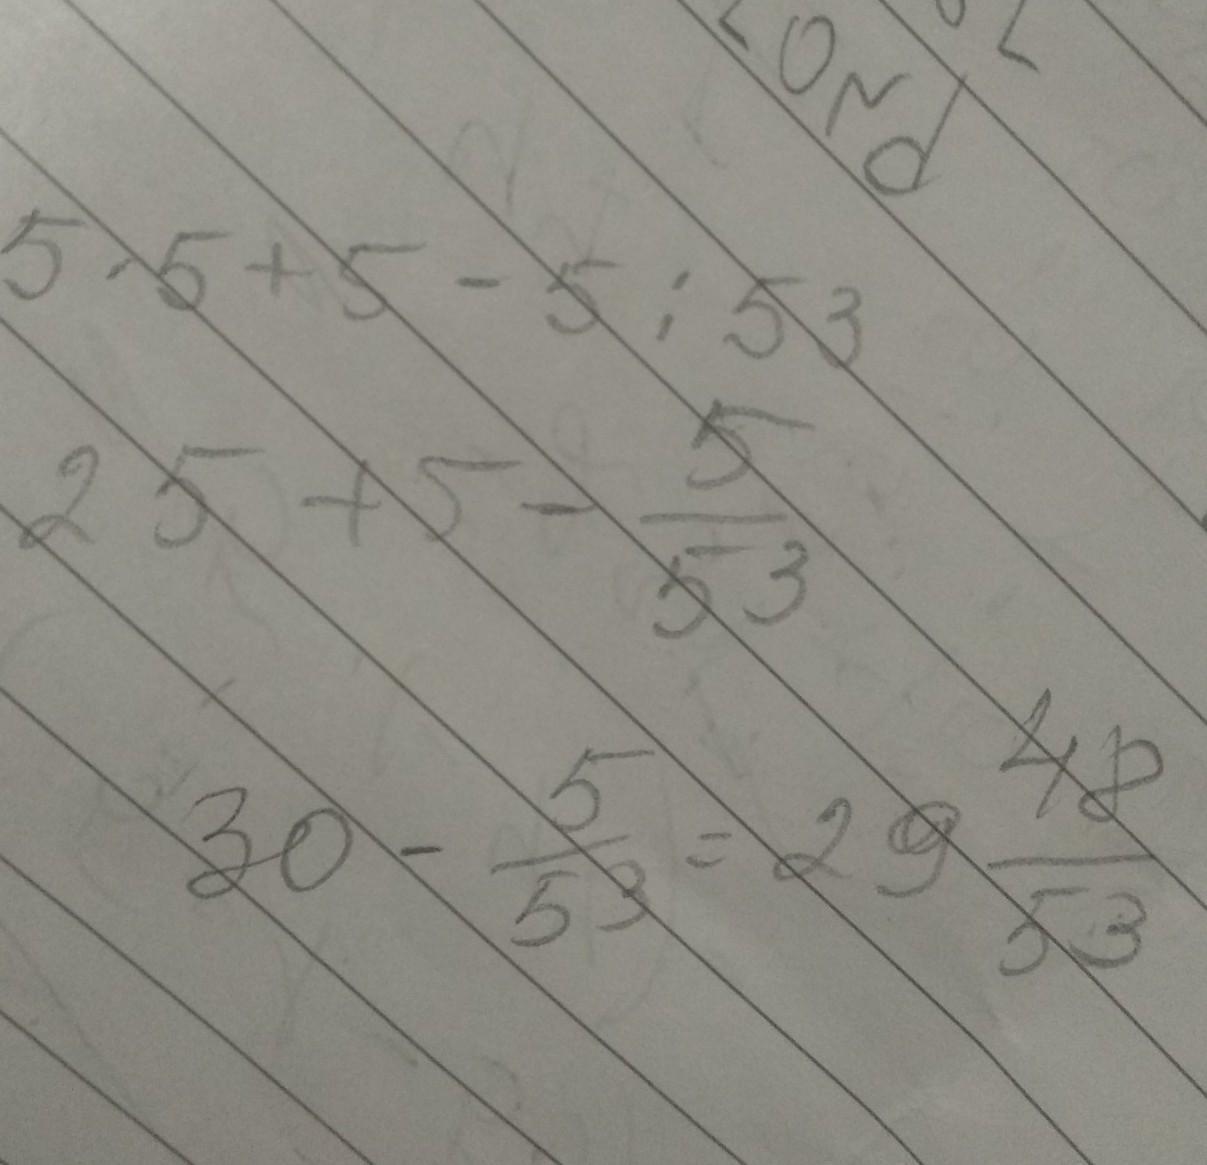 5 · 5 + 5 - 5 : 53
25 + 5 - 5/53
30 - 5/53 = 29 48/53